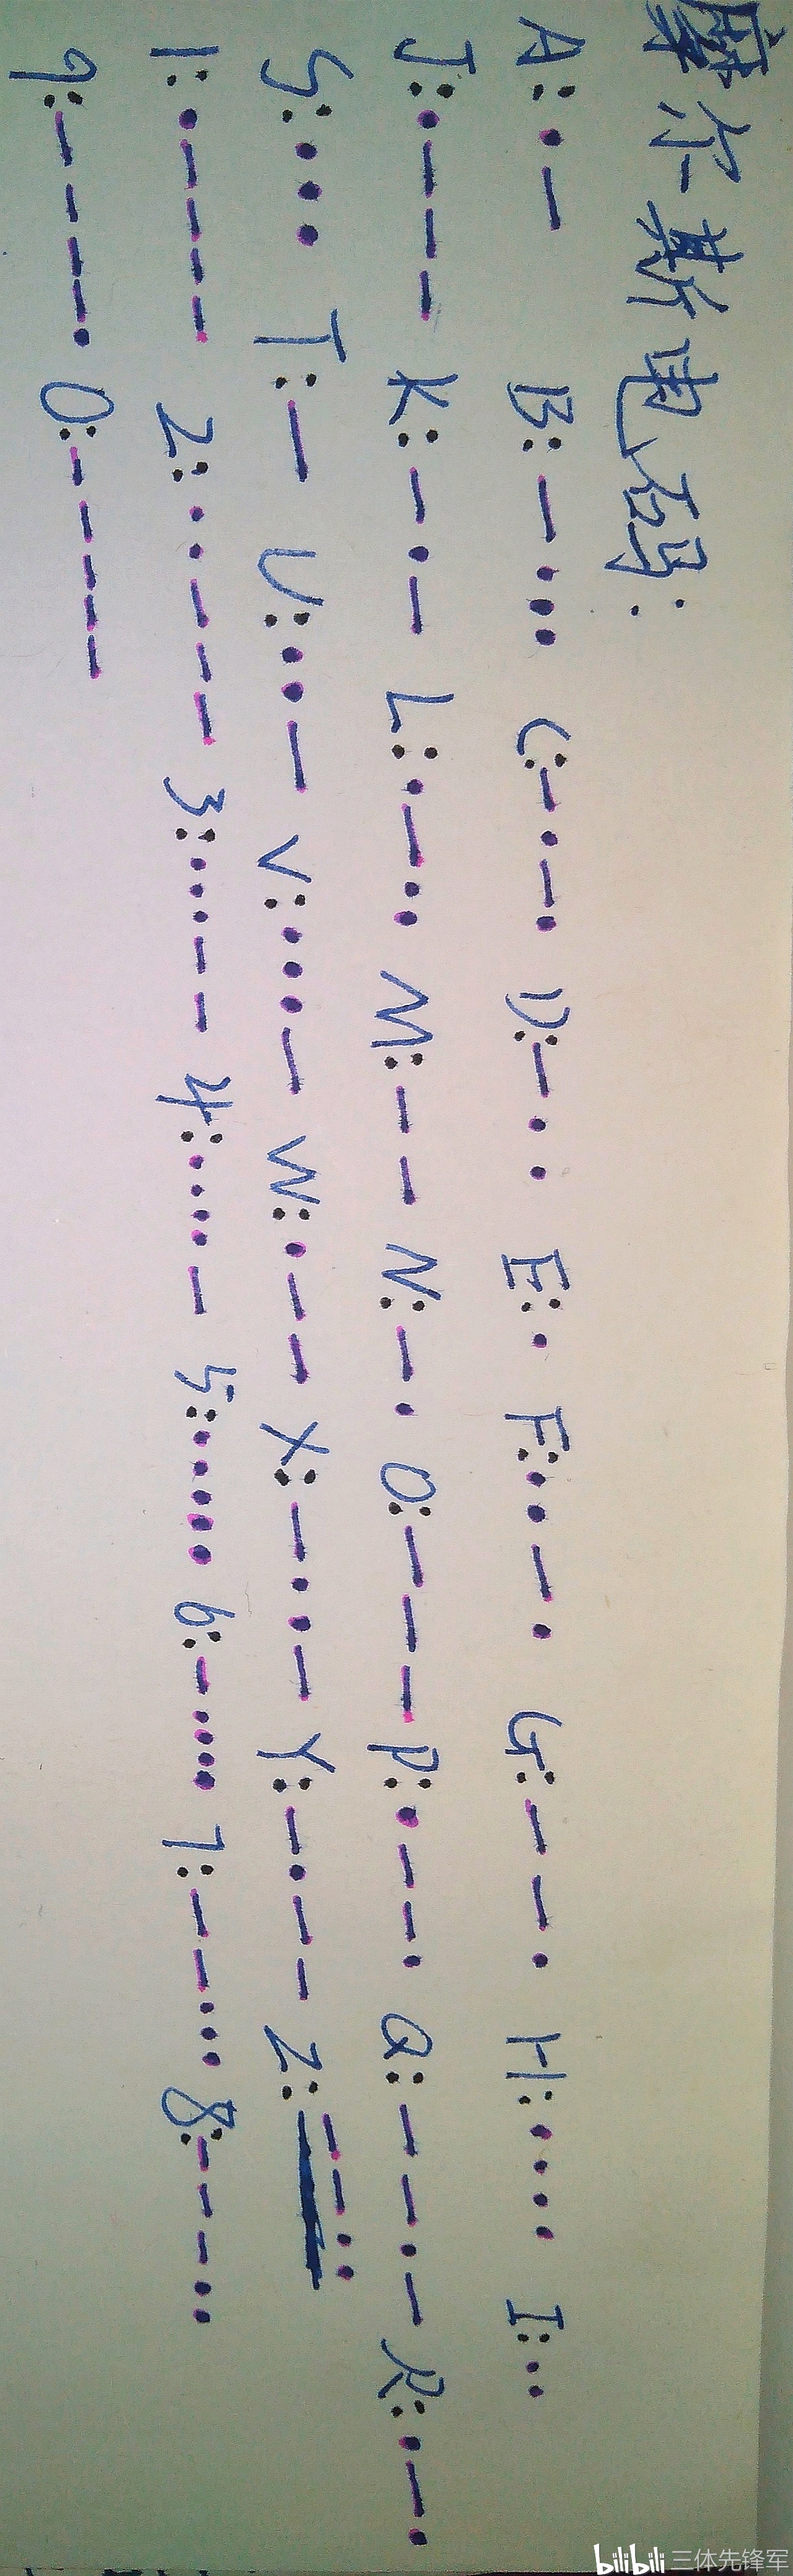 摩尔斯电码:
A: ·— B: —··· C: —·—· D: —·· E: · F: ··—· G: ——· H: ···· I: ··
J: ·——— K: —·— L: ·—·· M: —— N: —· O: ——— P: ·——· Q: ——·— R: ·—·
S: ··· T: — U: ··— V: ···— W: ·—— X: —··— Y: —·—— Z: ——··
1: ·———— 2: ··——— 3: ···—— 4: ····— 5: ····· 6: —···· 7: ——··· 8: ———··
9: ————· 0: —————
bilibili 三体先锋军